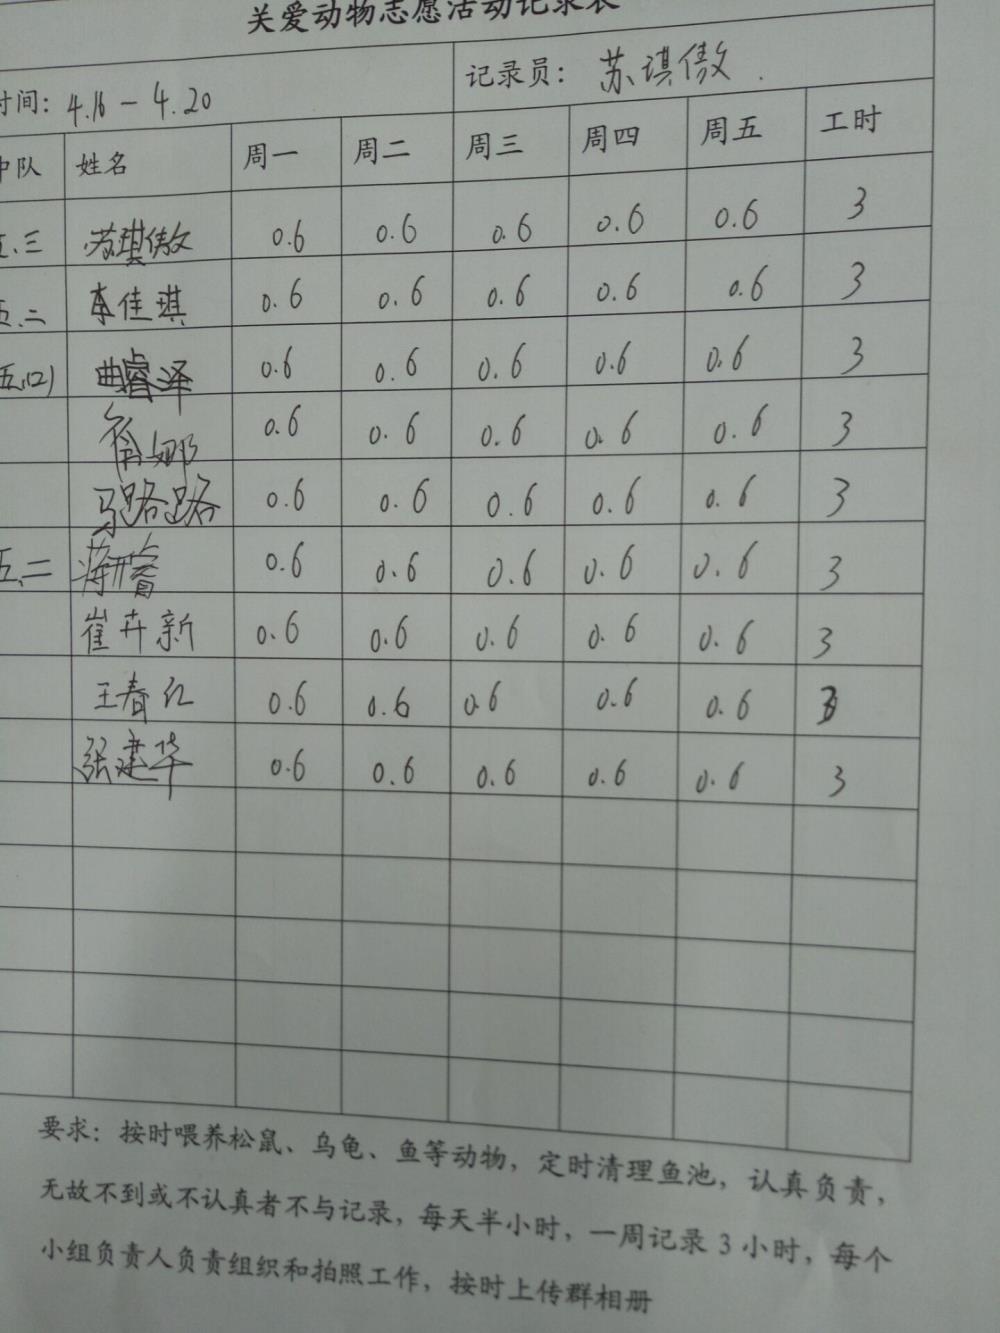 关爱动物志愿活动记录表
时间：4.16－4.20 记录员：苏琪傲.
中队 姓名 周一 周二 周三 周四 周五 工时
五.三 苏琪傲 0.6 0.6 0.6 0.6 0.6 3
五.二 李佳琪 0.6 0.6 0.6 0.6 0.6 3
五.(2) 曲睿泽 0.6 0.6 0.6 0.6 0.6 3
娜 0.6 0.6 0.6 0.6 0.6 3
马路路 0.6 0.6 0.6 0.6 0.6 3
五.二 蒋开睿 0.6 0.6 0.6 0.6 0.6 3
崔卉新 0.6 0.6 0.6 0.6 0.6 3
王春红 0.6 0.6 0.6 0.6 0.6 3
张建华 0.6 0.6 0.6 0.6 0.6 3
要求：按时喂养松鼠、乌龟、鱼等动物，定时清理鱼池，认真负责，
无故不到或不认真者不与记录，每天半小时，一周记录 3 小时，每个
小组负责人负责组织和拍照工作，按时上传群相册